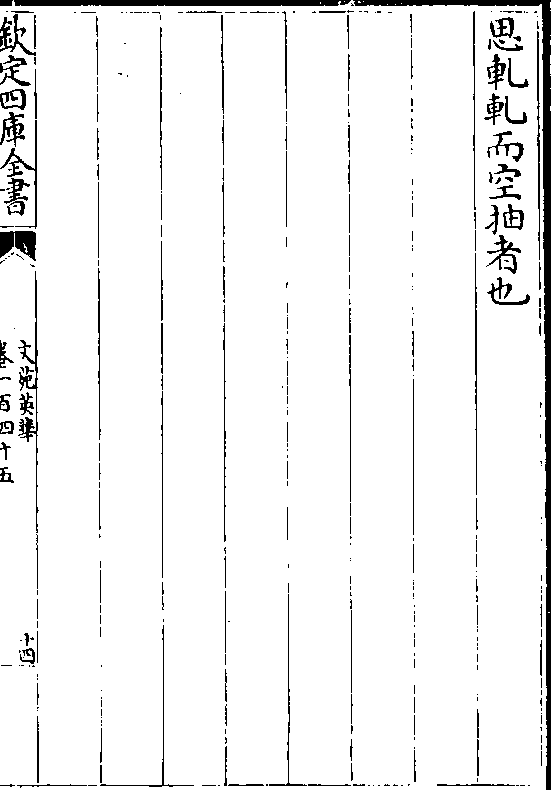 思軋軋而空抽者也
欽定四庫全書
文苑英華
卷一百四十五
十四